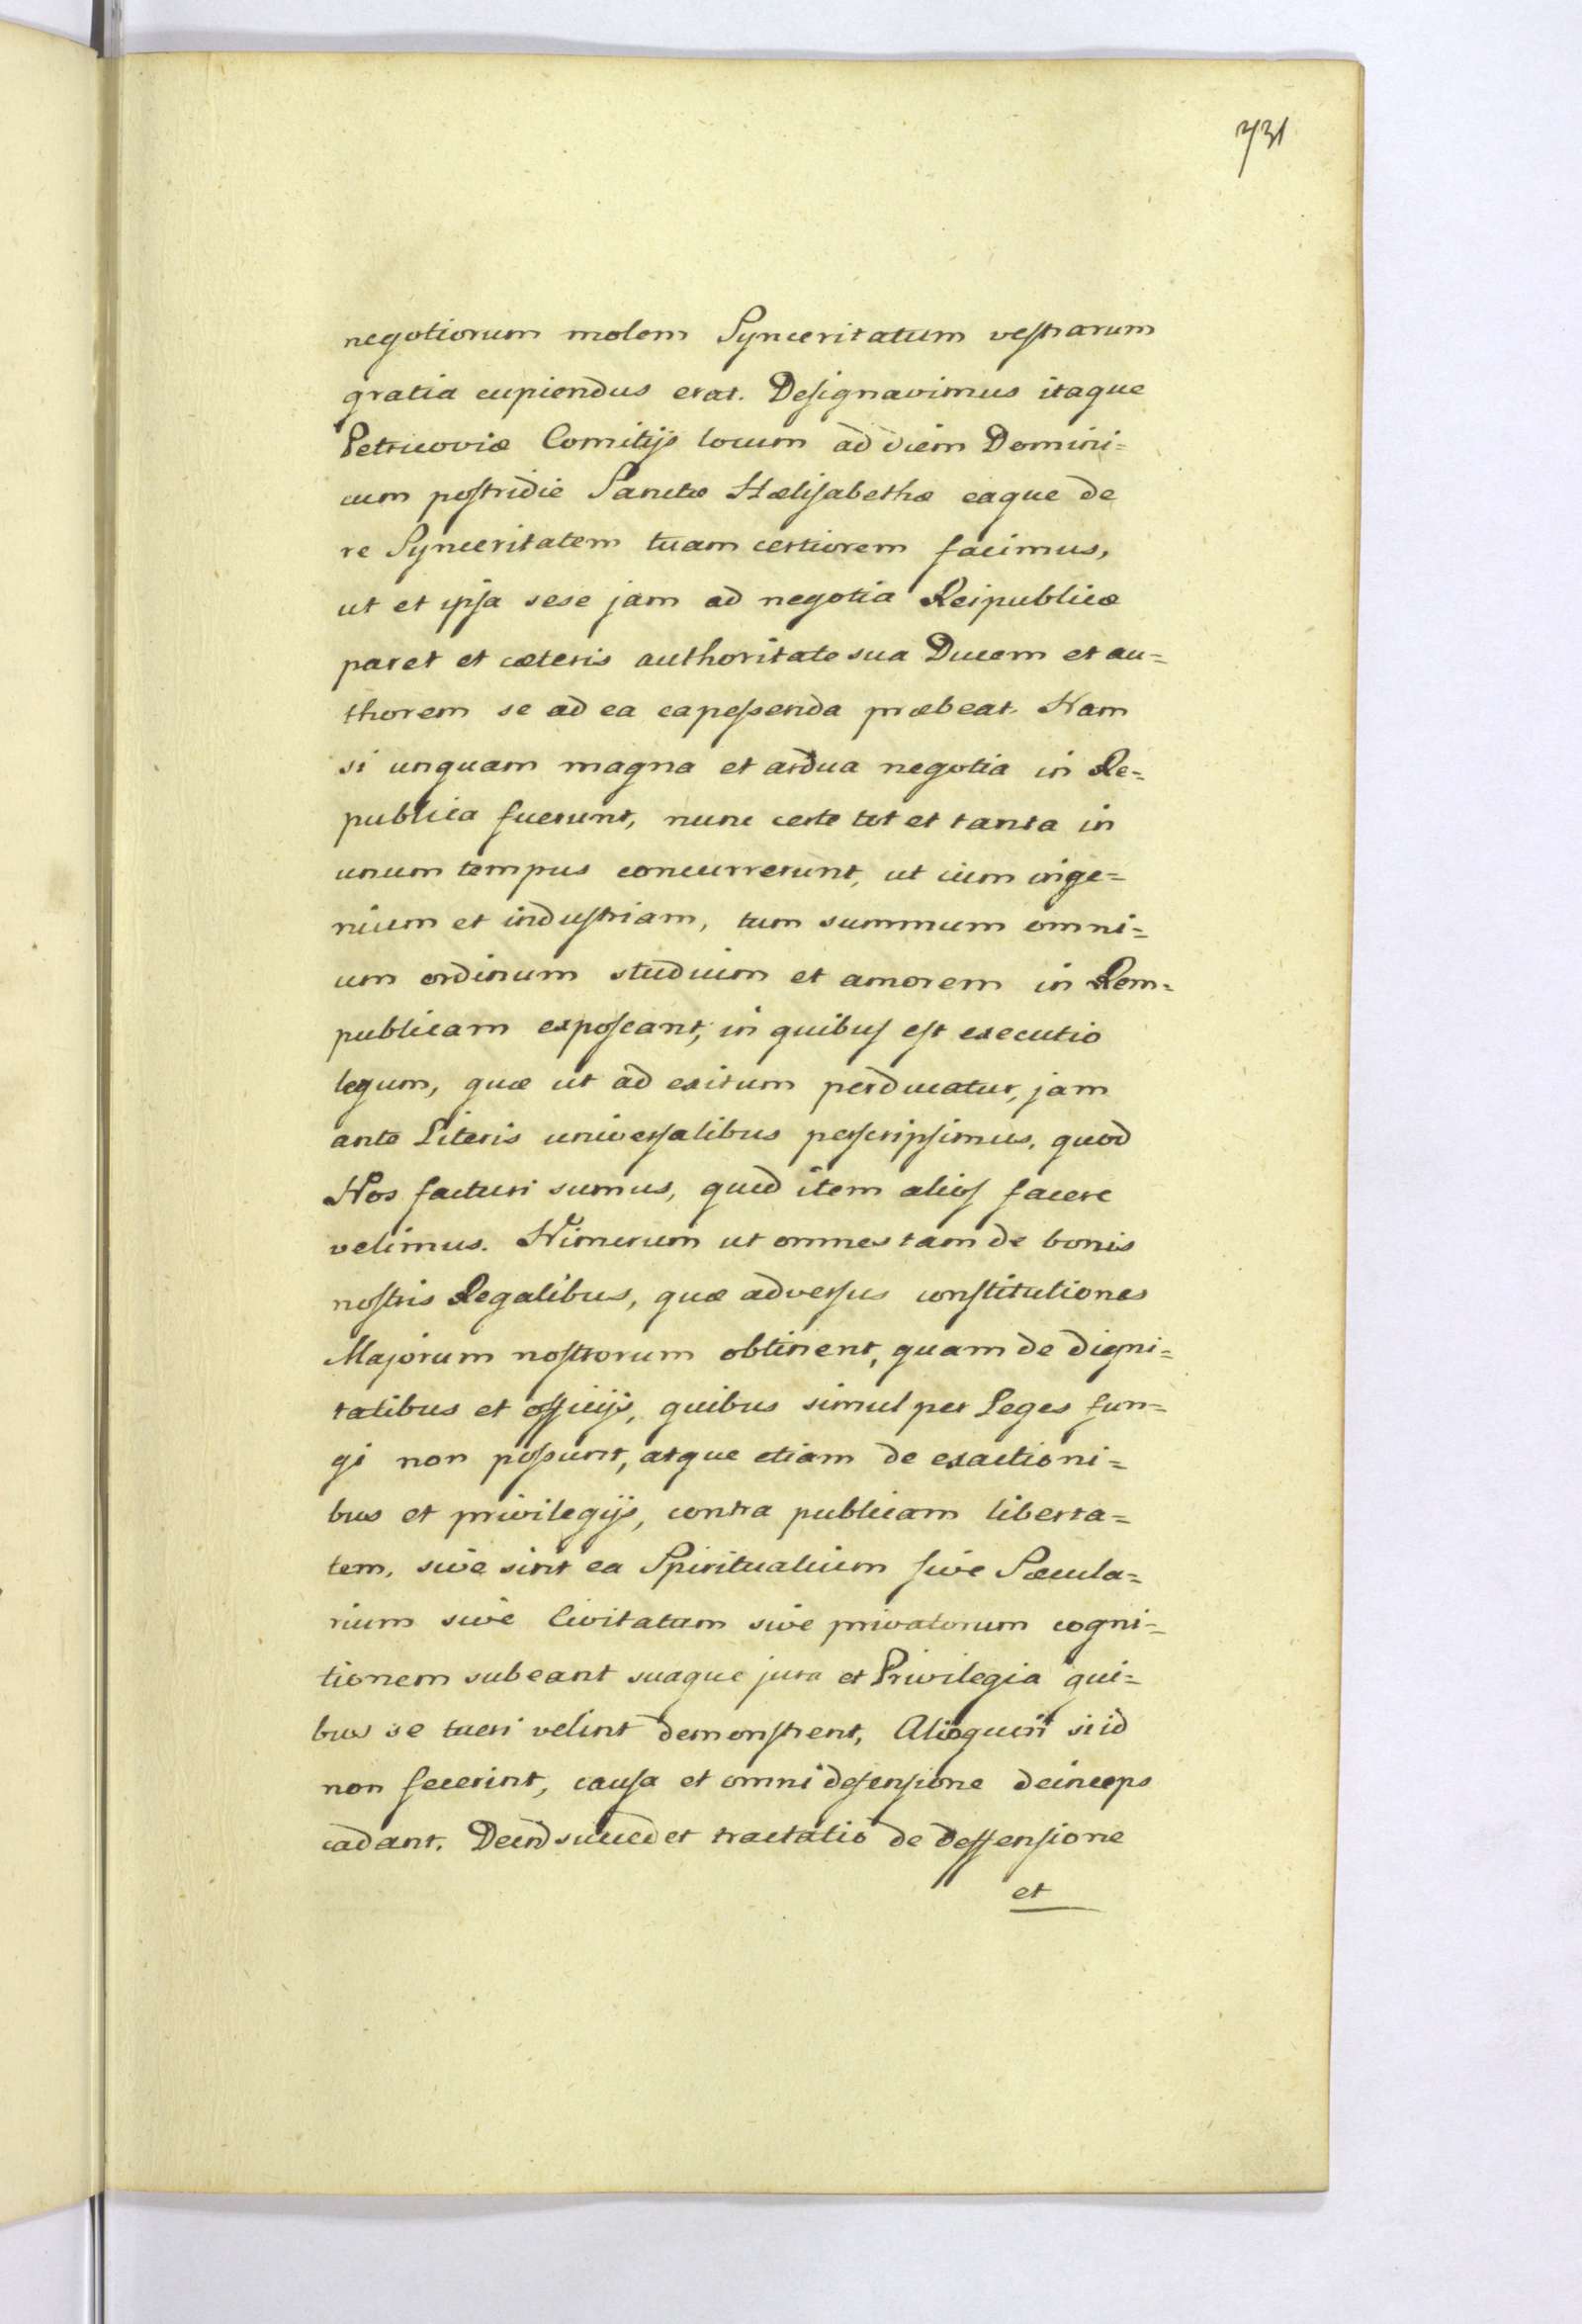 731
negotiorum molem Synceritatum vestrarum
gratia cupiendus erat. Designavimus itaque
Petricoviæ Comitijs locum ad diem Domini=
cum postridie Sanctæ Hælisabethæ eaque de
re Synceritatem tuam certiorem facimus,
ut et ipsa sese jam ad negotia Reipublicæ
paret et cæteris authoritate sua Ducem et au=
thorem se ad ea capessenda præbeat. Nam
si unquam magna et ardua negotia in Re=
publica fuerunt, nunc certe tot et tanta in
unum tempus concurrerunt, ut cum inge=
nium et industriam, tum summum omni=
um ordinum studium et amorem in Rem=
publicam exposcant, in quibus est executio
legum, quæ ut ad exitum perducatur, jam
ante Literis universalibus perscripsimus, quod
Nos facturi sumus, quid item alios facere
velimus. Nimirum ut omnes tam de bonis
nostris Regalibus, quæ adversus constitutiones
Majorum nostrorum obtinent, quam de digni=
tatibus et officijs, quibus simul per Leges fun=
gi non possunt, atque etiam de exactioni=
bus et privilegijs, contra publicam liberta=
tem, sive sint ea Spiritualium sive Sæcula=
rium sive Civitatum sive privatorum cogni=
tionem subeant suaque jura et Privilegia qui=
bus se tueri velint demonstrent, Alioquin si id
non fecerint, causa et omni defensione deinceps
cadant. Deind succedet tractatio de deffensione
et